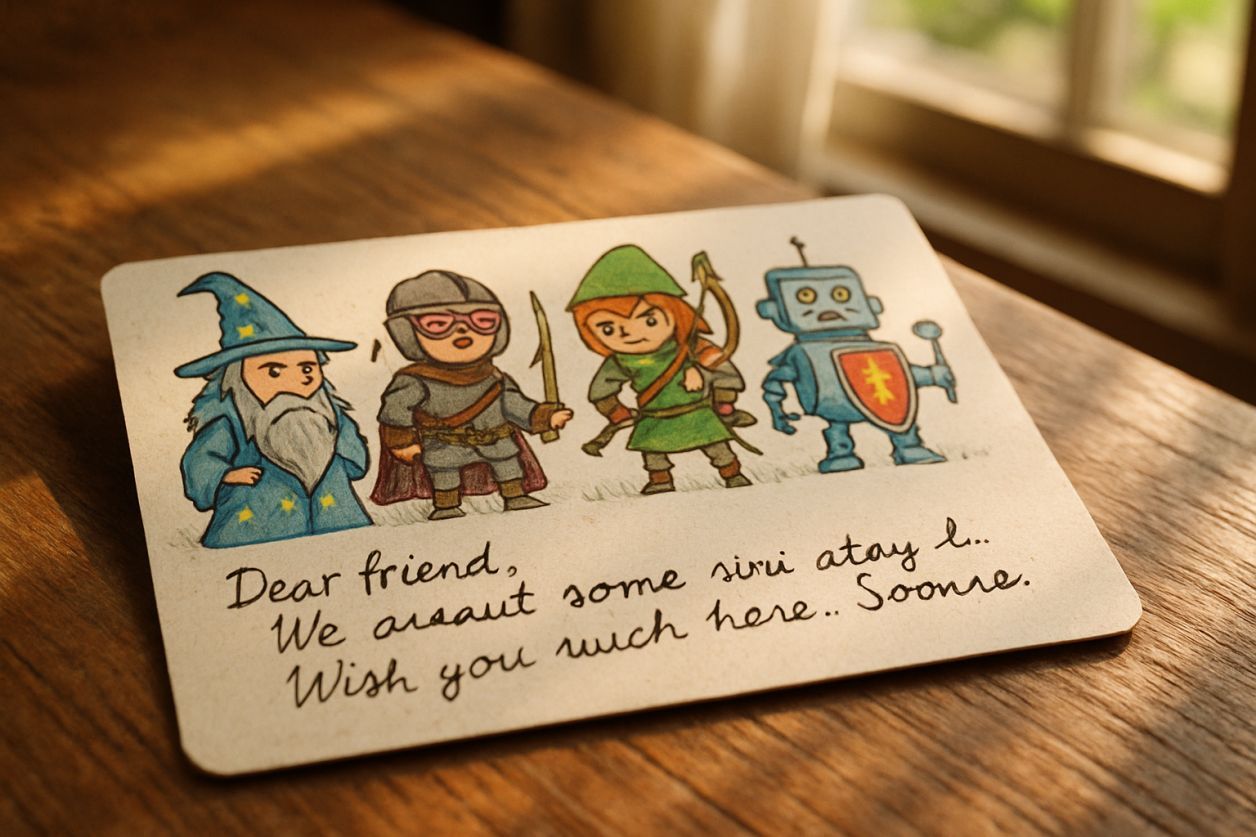 Dear friend,
We assaut some sirii atay l..
Wish you much here.. Soonre.